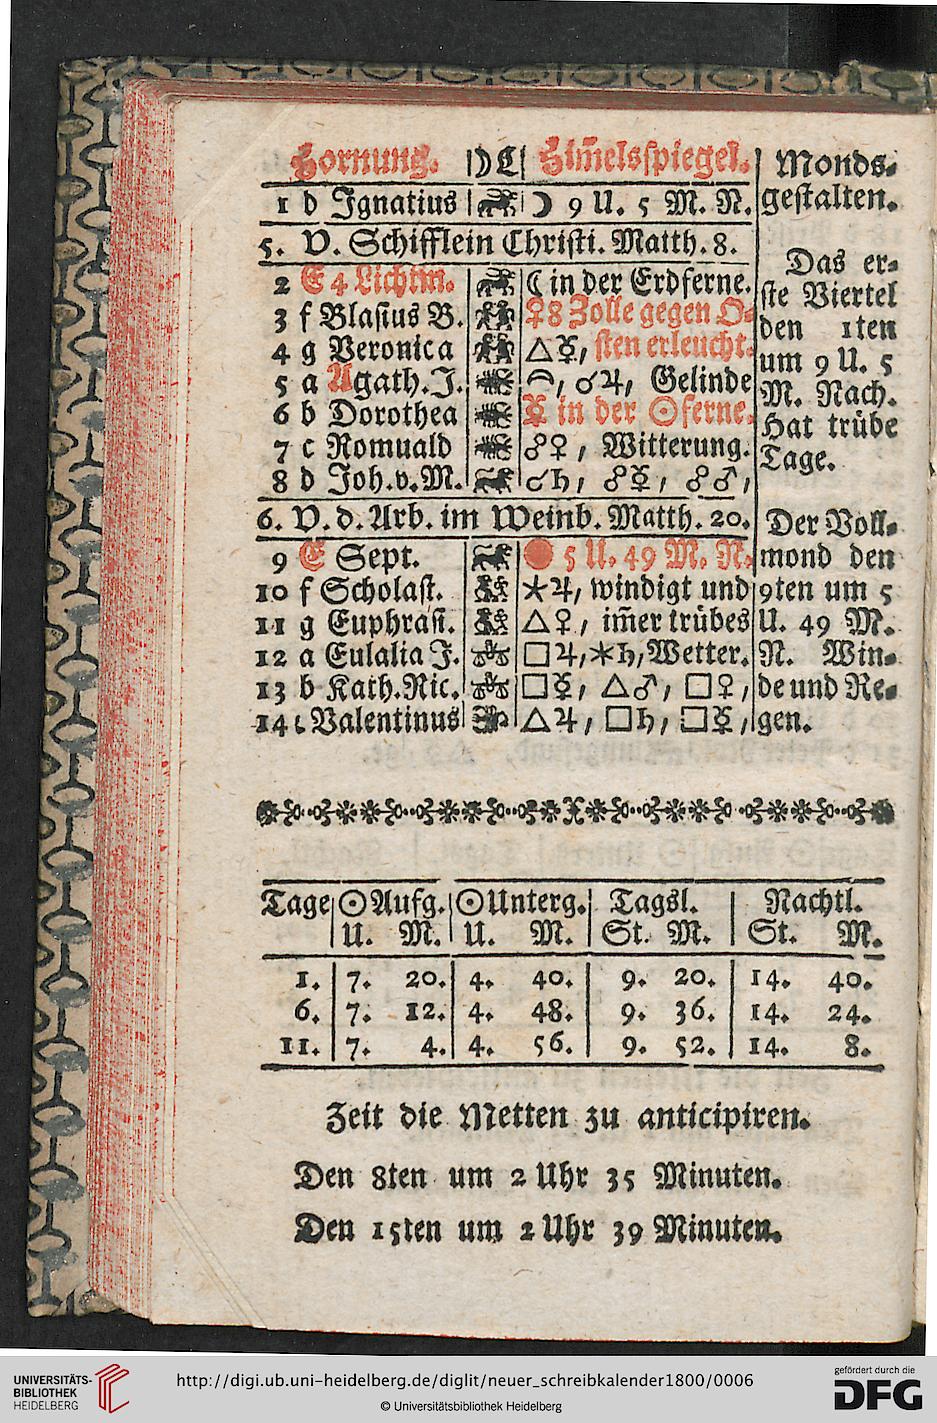 Hornung. |☽☾| Him̃elsspiegel.
1 d Ignatius ☽ 9 U. 5 M. N.
5. V. Schifflein Christi. Matth. 8.
2 E 4 Lichtm. ☾ in der Erdferne.
3 f Blasius B. ♀ 8 Zolle gegen O-
4 g Veronica △☿, sten erleucht.
5 a Agath. J. ☌♃, Gelinde
6 b Dorothea ☿ in der ☉ferne.
7 c Romuald ☍♀, Witterung.
8 d Joh. v. M. ☌♄, ☍☿, ☍♂,
6. V. d. Arb. im Weinb. Matth. 20.
9 E Sept. 5 U. 49 M. N.
10 f Scholast. ⚹♃, windigt und
11 g Euphras. △♀, im̃er trübes
12 a Eulalia J. □♃, ⚹♄, Wetter.
13 b Kath. Ric. □☿, △♂, □♀,
14 c Valentinus △♃, □♄, □☿,
Monds-
gestalten.
Das er-
ste Viertel
den 1ten
um 9 U. 5
M. Nach.
Hat trübe
Tage.
Der Voll-
mond den
9ten um 5
U. 49 M.
N. Win-
de und Re-
gen.
Tage ☉Aufg. ☉Unterg. Tagsl. Nachtl.
U. M. U. M. St. M. St. M.
1. 7. 20. 4. 40. 9. 20. 14. 40.
6. 7. 12. 4. 48. 9. 36. 14. 24.
11. 7. 4. 4. 56. 9. 52. 14. 8.
Zeit die Metten zu anticipiren.
Den 8ten um 2 Uhr 35 Minuten.
Den 15ten um 2 Uhr 39 Minuten.
UNIVERSITÄTS-
BIBLIOTHEK
HEIDELBERG
http://digi.ub.uni-heidelberg.de/diglit/neuer_schreibkalender1800/0006
© Universitätsbibliothek Heidelberg
gefördert durch die
DFG